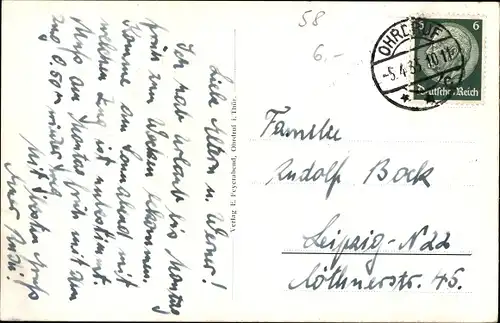 58
6.-
OHRDRUF
-5.4.3
10-11
6
Deutsches Reich
Liebe Eltern u. Werner!
Ich hab Urlaub bis Montag
früh zum Wecken bekommen.
Komme am Sonnabend mit
welchem Zug ist unbestimmt.
Muß am Montag früh mit dem
Zug 0,50 wieder weg
Mit besten Gruß
Euer
Verlag E. Feyerabend, Ohrdruf i. Thür.
Familie
Rudolf Bock
Leipzig-N22
Köthnerstr. 45.